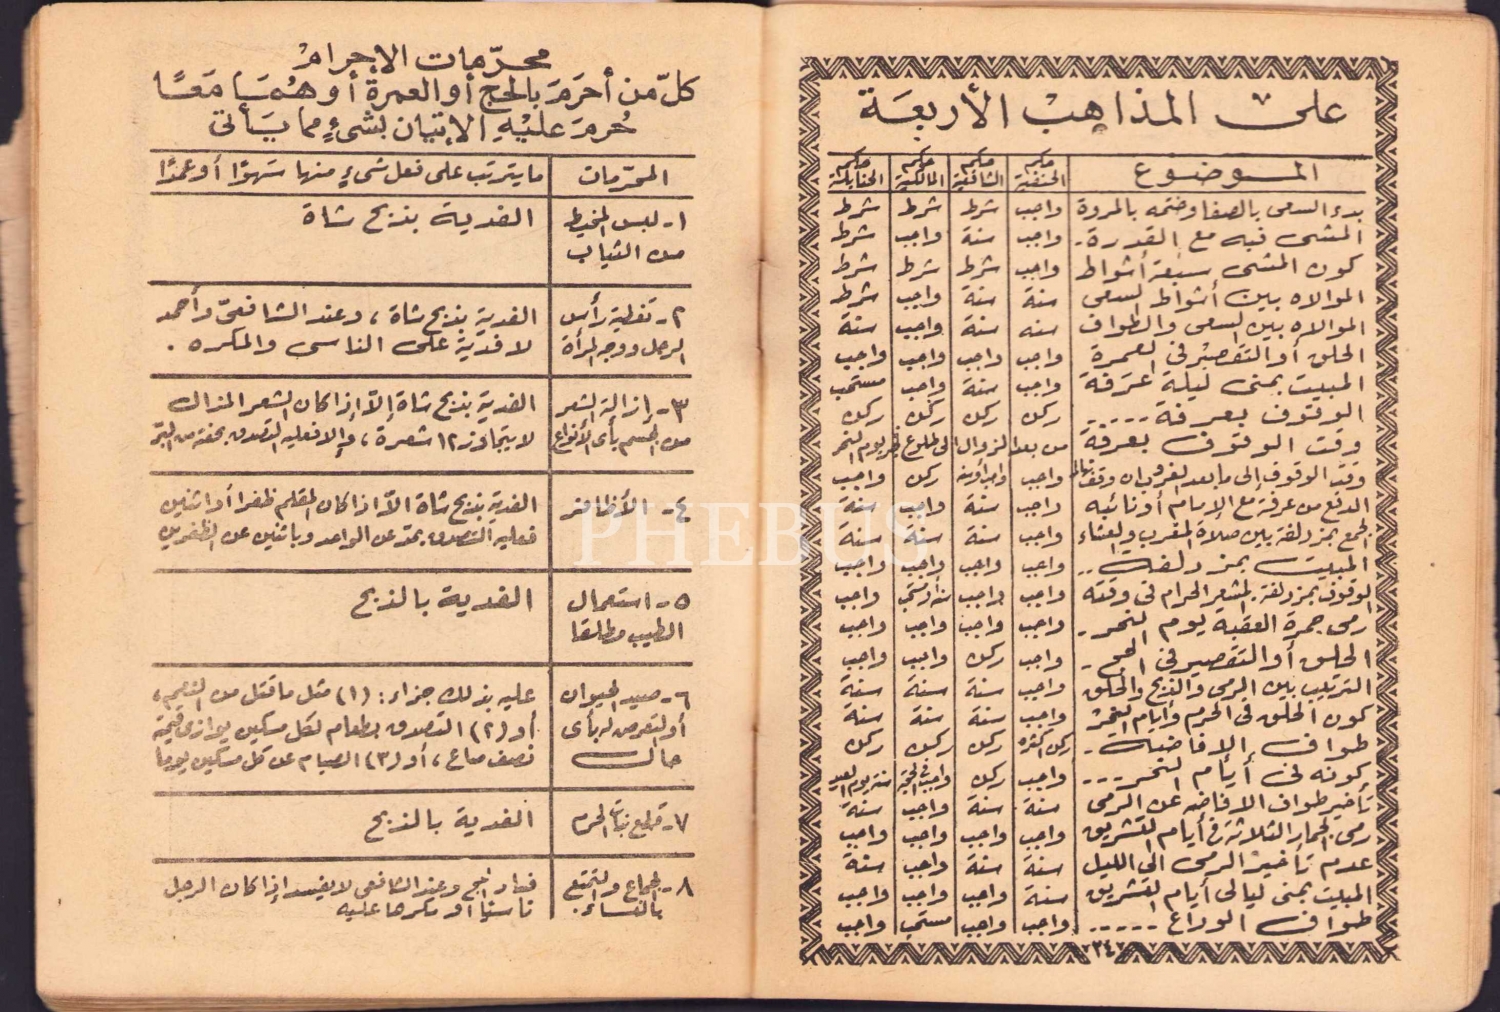 على المذاهب الأربعة
الموضوع حكم الحنفية حكم الشافعية حكم المالكية حكم الحنابلة
بدء السعى بالصفا وختمه بالمروة واجب شرط شرط شرط
المشى فيه مع القدرة . واجب سنة واجب شرط
كون المشى سبعة أشواط واجب شرط شرط شرط
الموالاه بين أشواط السعى سنة سنة واجب شرط
الموالاه بين السعى والطواف سنه سنة واجب سنة
الحلق أو التقصير فى العمرة واجب واجب واجب واجب
المبيت بمنى ليلة عرفة واجب سنة واجب مستحب
الوقوف بعرفة ..... ركن ركن ركن ركن
وقت الوقوف بعرفة من بعد الزوال الى طلوع فجر يوم النحر
وقت الوقوف إلى ما بعد الغروب ان وقف نهارا واجب ركن واجب
الدفع من عرفة مع الإمام أو نائبه واجب سنة واجب سنة
الجمع بمزدلفة بين صلاة المغرب والعشاء واجب سنة سنة سنة
المبيت بمزدلفة .. واجب واجب واجب واجب
الوقوف بمزدلفة بالمشعر الحرام فى وقته واجب واجب واجب
رمى جمرة العقبة يوم النحر . واجب واجب واجب واجب
الحلق أو التقصير فى الحج . واجب ركن واجب واجب
الترتيب بين الرمى والذبح والحلق واجب سنة سنة سنة
كون الحلق فى الحرم وأيام النحر واجب سنة سنة سنة
طواف الإفاضة . ركن أكثره ركن ركن ركن
كونه فى أيام النحر ... واجب ركن سنة يوم العيد
تأخير طواف الافاضه عن الرمى سنة سنة واجب سنة
رمى الجمار الثلاثة فى أيام التشريق واجب واجب واجب واجب
عدم تأخير الرمى الى الليل سنة سنة واجب سنة
المبيت بمنى ليالى أيام التشريق سنة واجب واجب واجب
طواف الوداع ..... واجب واجب مستحب واجب
٣٤
محرّمات الإحرام
كلّ من أحرَمَ بالحج أو العمرة أو هُمَا مَعًا
حُرمَ عليْهِ الإتيان بشىءٍ مما يَأتى
المحرّمات ما يترتب على فعل شىءٍ منها سَهوًا أو عمدًا
١- لبس المخيط الفدية بذبح شاة
من الثياب
٢- تغطية رأس الفدية بذبح شاة ، وعند الشافعىّ وأحمد
الرجل ووجه المرأة لا فدية على الناسى والمكره .
٣- إزالة الشعر الفدية بذبح شاة إلاّ إذا كان الشعر المزال
من الجسم بأى الأنواع لا يتجاوز ١٢ شعرة ، وإلا فعليه التصدق بحفنة من البر
٤- الأظافر الفدية بذبح شاة الاّ اذا كان المقلم ظفرا أو اثنين
فعليه التصدق بمد عن الواحد وباثنين عن الظفرين
٥- استعمال الفدية بالذبح
الطيب مطلقا
٦- صيد الحيوان عليه بذلك جزاء : (١) مثل ما قتل من النعم ،
أو التعرض له بأى أو (٢) التصدق بطعام لكل مسكين يوازى قيمة
حال نصف صاع ، أو (٣) الصيام عن كل مسكين يوما
٧- قطع نبات الحرم الفدية بالذبح
٨- الجماع والتمتع فساد الحج وعند الشافعى لا يفسد إذا كان الرجل
بالنساء . ناسيًا أو مكرها عليه
PHEBUS